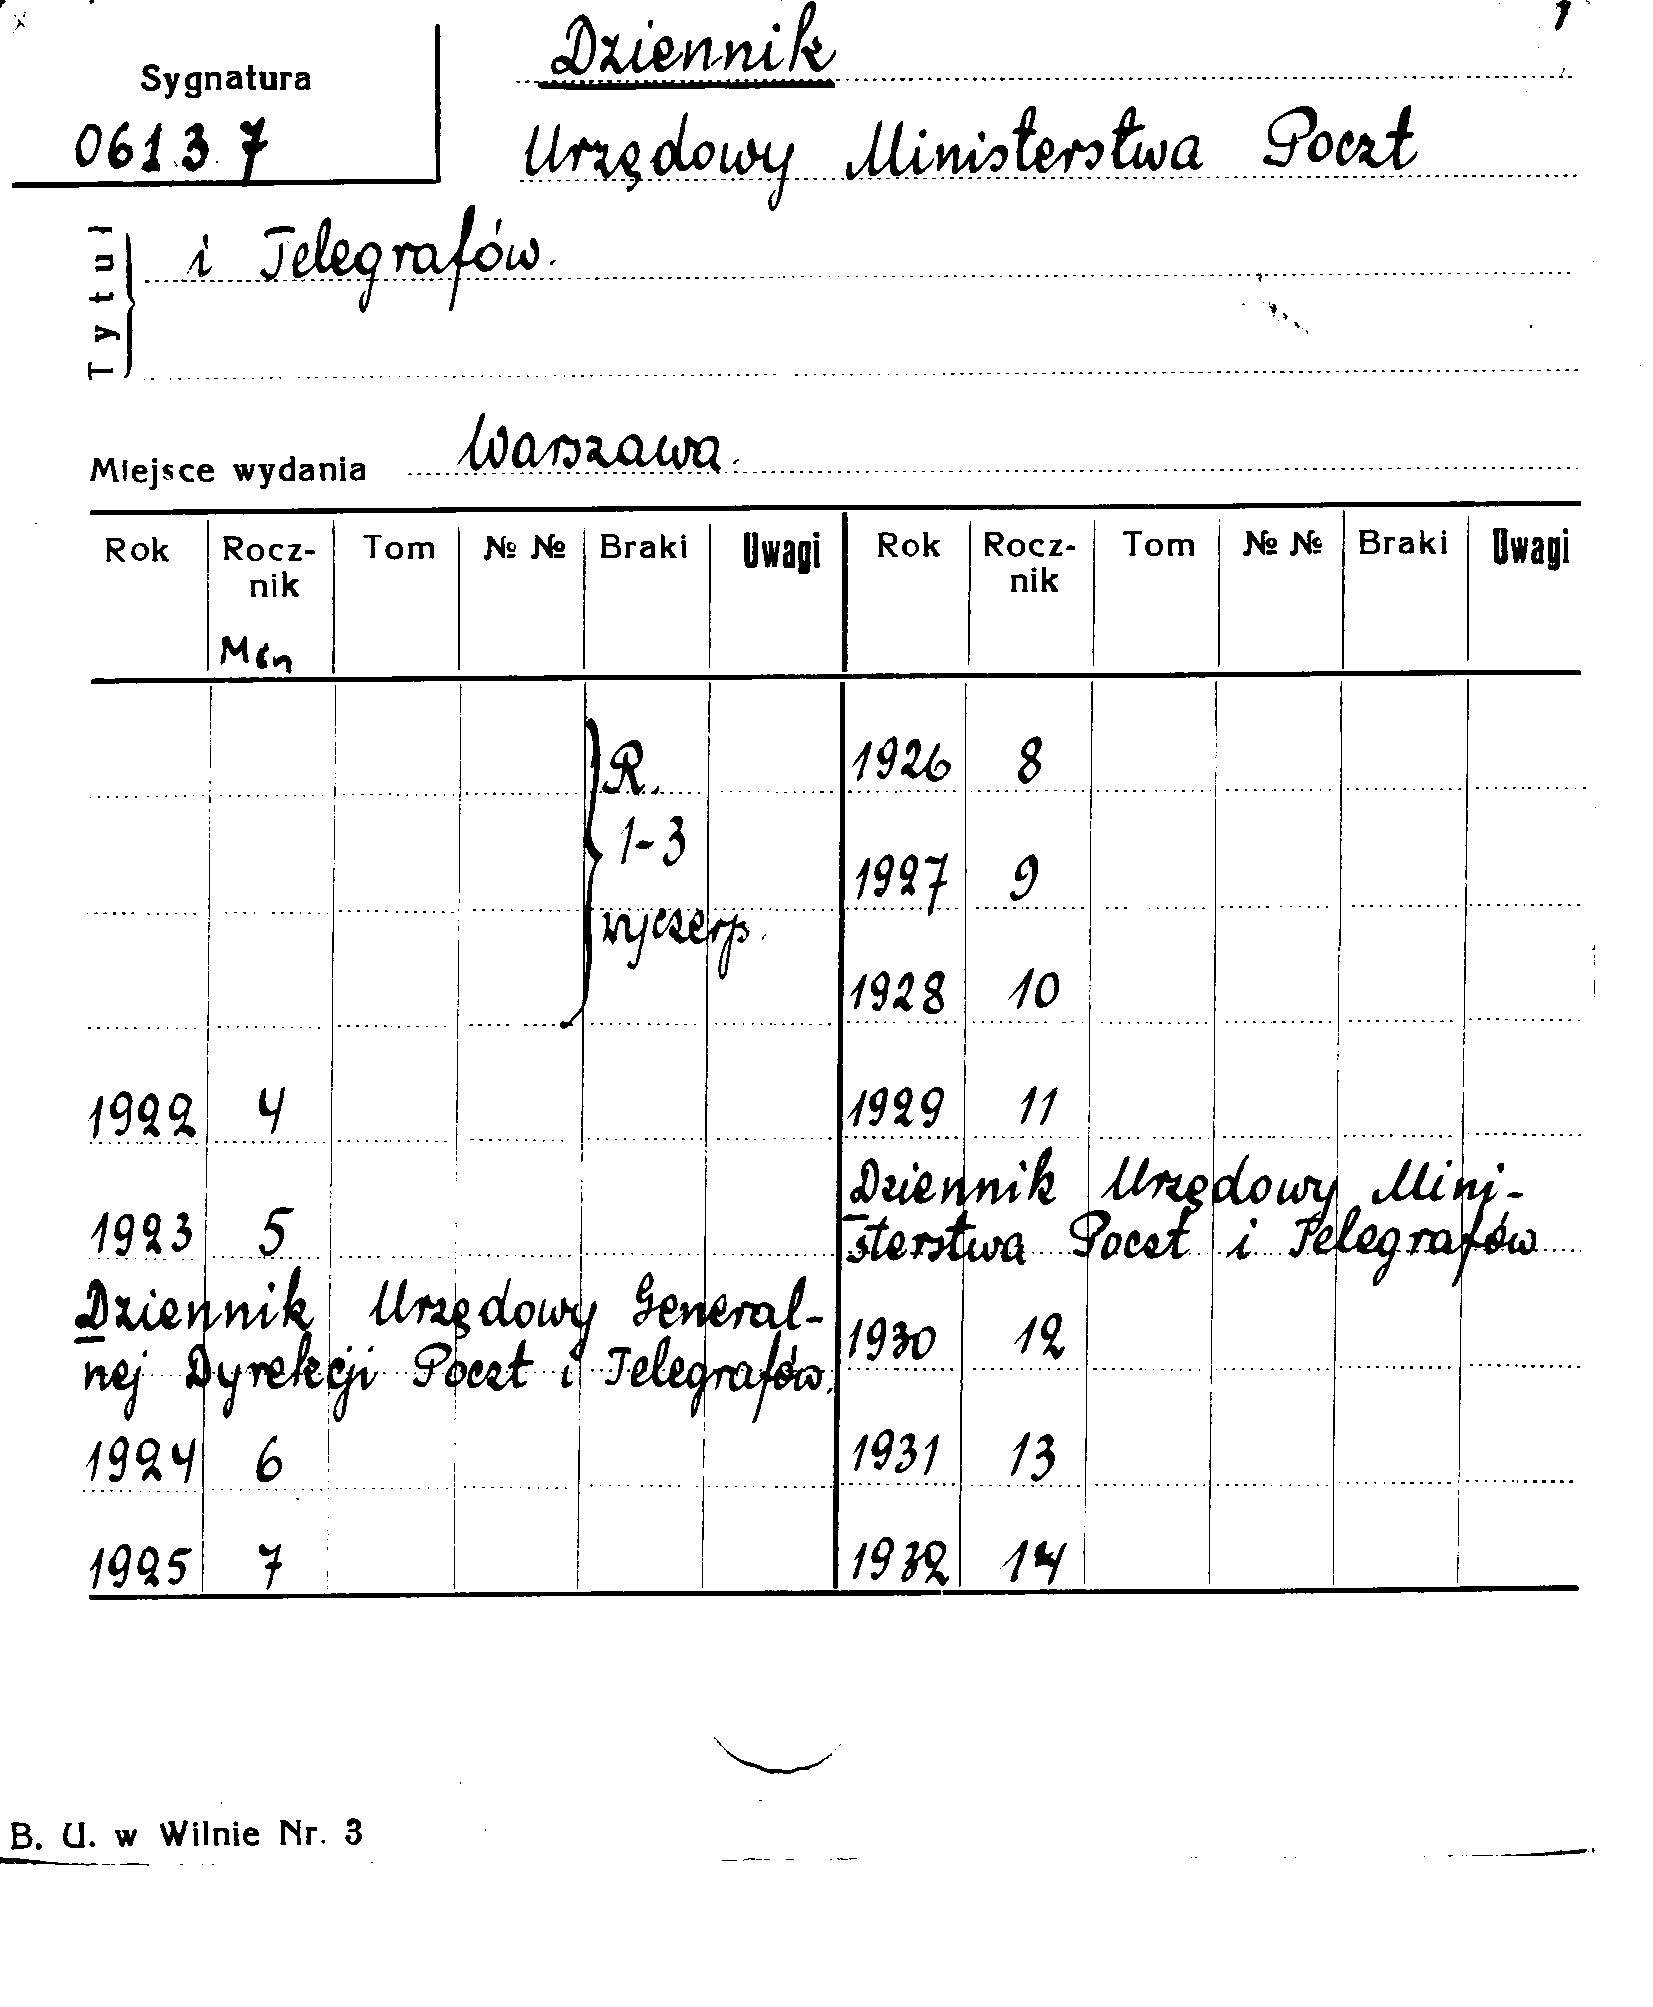 1
Dziennik
Sygnatura
06137
Urzędowy Ministerstwa Poczt
Tytuł
i Telegrafów.
Miejsce wydania Warszawa.
Rok Rocz- Tom № № Braki Uwagi Rok Rocz- Tom № № Braki Uwagi
nik nik
R. 1926 8
1-3
1927 9
wyczerp.
1928 10
1922 4 1929 11
1923 5 Dziennik Urzędowy Mini-
sterstwa Poczt i Telegrafów
Dziennik Urzędowy General-
nej Dyrekcji Poczt i Telegrafów.
1930 12
1924 6 1931 13
1925 7 1932 14
B. U. w Wilnie Nr. 3